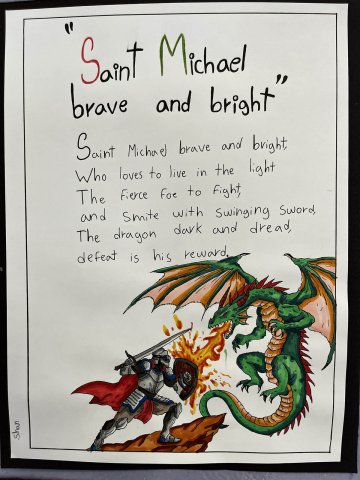 "Saint Michael
brave and bright"
Saint Michael brave and bright,
Who loves to live in the light
The fierce foe to fight,
and smite with swinging sword,
The dragon dark and dread,
defeat is his reward.